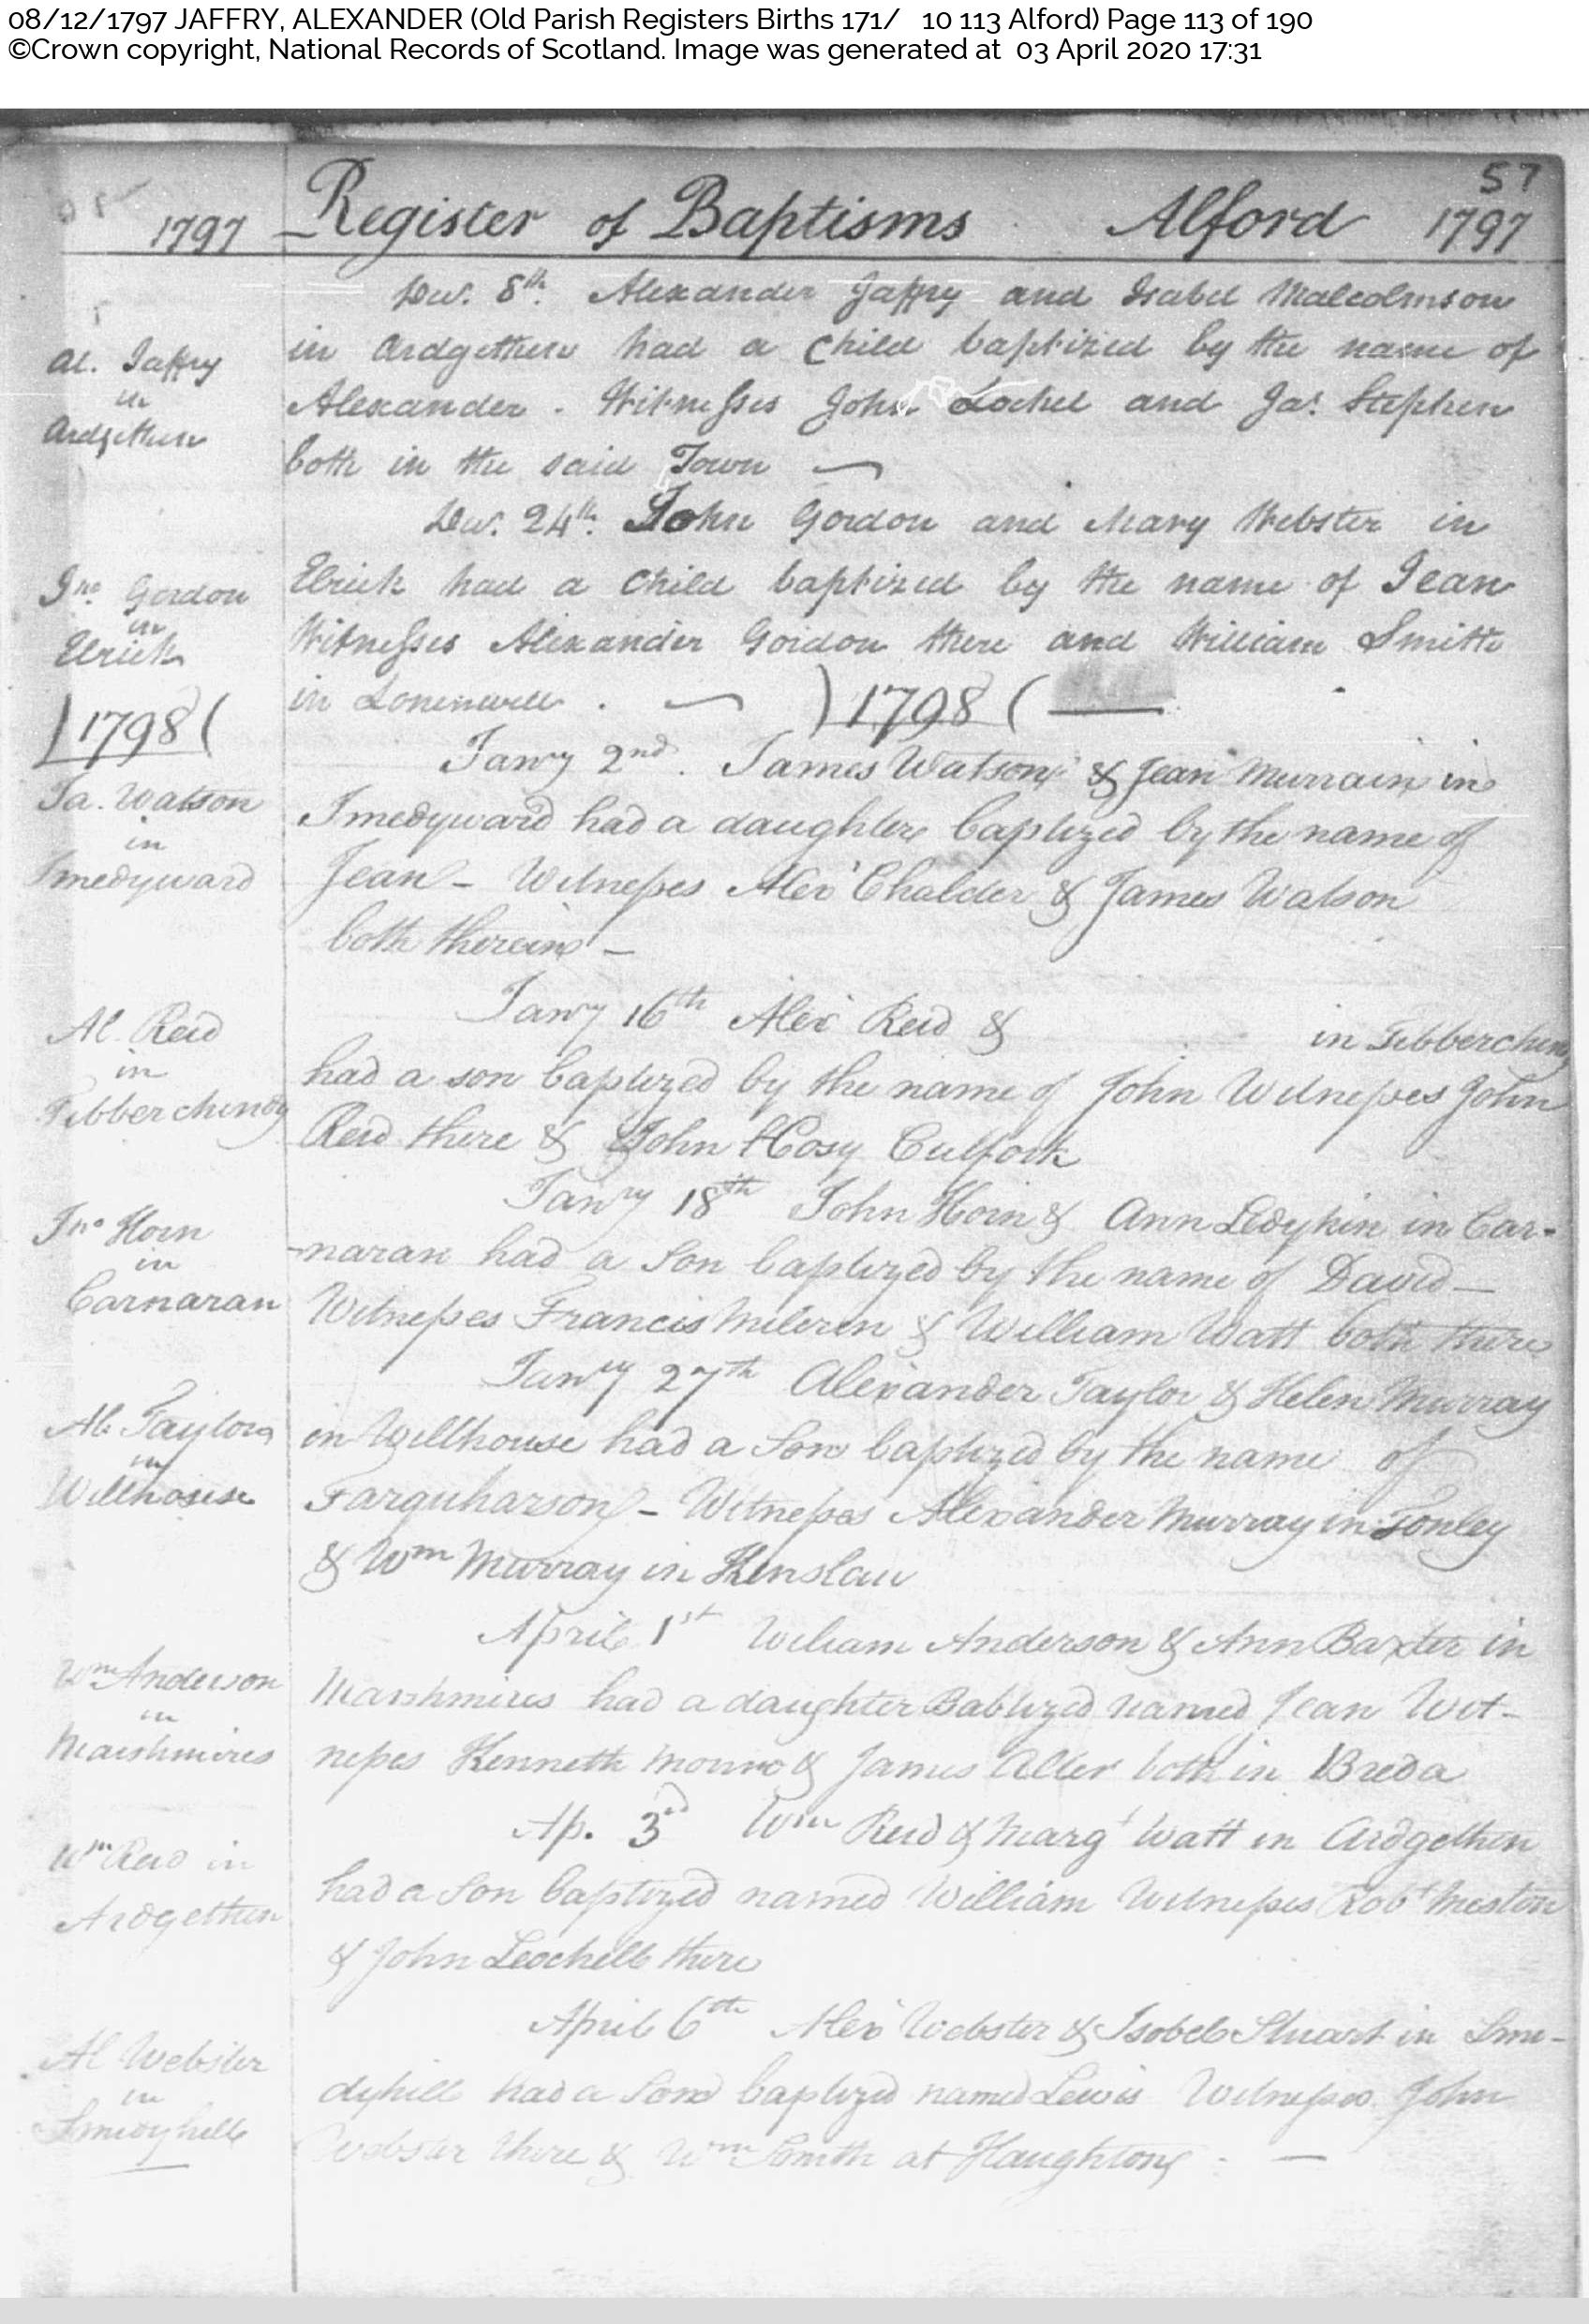 08/12/1797 JAFFRY, ALEXANDER (Old Parish Registers Births 171/ 10 113 Alford) Page 113 of 190
©Crown copyright, National Records of Scotland. Image was generated at 03 April 2020 17:31
57
1797 Register of Baptisms Alford 1797
Al. Jaffry
in
Ardgethen
Dec. 8th. Alexander Jaffry and Isabel Malcolmson
in Ardgethen had a Child baptized by the name of
Alexander. Witnesses John Lochel and Jas. Stephen
both in the said Town
Jno. Gordon
in
Elrick
Dec. 24th. John Gordon and Mary Webster in
Elrick had a Child baptized by the name of Jean
Witnesses Alexander Gordon there and William Smith
in
)1798(
)1798(
Ja. Watson
in
Smedyward
Janry 2nd. James Watson & Jean Murrain in
Smedyward had a daughter baptized by the name of
Jean - Witnesses Alexr Chalder & James Watson
both therein -
Al. Reid
in
Tibberchindy
Janry 16th Alexr Reid & in Tibberchindy
had a son baptized by the name of John Witnesses John
Reid there & John
Jno Horn
in
Carnaran
Janry 18th John Horn & Ann Ledykin in Car-
-naran had a Son baptized by the name of David -
Witnesses Francis & William Watt both there
Al. Taylor
in
Wellhouse
Janry 27th Alexander Taylor & Helen Murray
in Wellhouse had a Son baptized by the name of
Farquharson - Witnesses Alexander Murray in Tonley
& Wm Murray in Kinslaw
Wm Anderson
in
Marshmires
April 1st William Anderson & Ann Baxter in
Marshmires had a daughter Babtized named Jean Wit-
nesses Kenneth Monro & James both in Breda
Wm Reid in
Ardgethen
Ap. 3d Wm Reid & Margt Watt in Ardgethen
had a Son baptized named William Witnesses Robt Meston
& John Leochell there
Al Webster
in
Smedyhill
April 6th Alexr Webster & Isobel Stuart in Sme-
dyhill had a Son baptized named Lewis Witnesses John
Webster there & Wm Smith at Haughton -